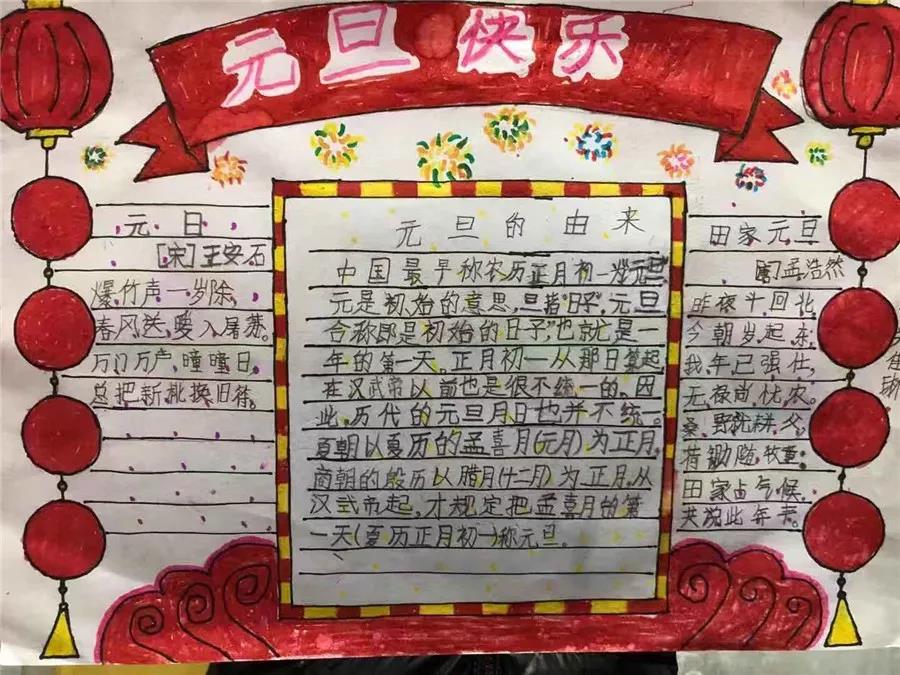 元旦快乐
元日
[宋]王安石
爆竹声一岁除,
春风送暖入屠苏。
万门万户,曈曈日,
总把新桃换旧符。
元旦的由来
中国最早称农历正月初一为"元旦"
元是初始的意思,旦指"日子",元旦
合称即是初始的日子"也就是一
年的第一天。正月初一从那日算起
在汉武帝以前也是很不统一的,因
此,历代的元旦月日也并不统一。
夏朝以夏历的孟喜月(元月)为正月,
商朝的殷历以腊月(十二月)为正月,从
汉武帝起,才规定把孟喜月的第
一天(夏历正月初一)称元旦。
田家元旦
孟浩然
昨夜斗回北,
今朝岁起东;
我年已强仕,
无禄尚忧农。
桑野就耕父,
荷锄随牧童;
田家占气候,
共说此年丰。